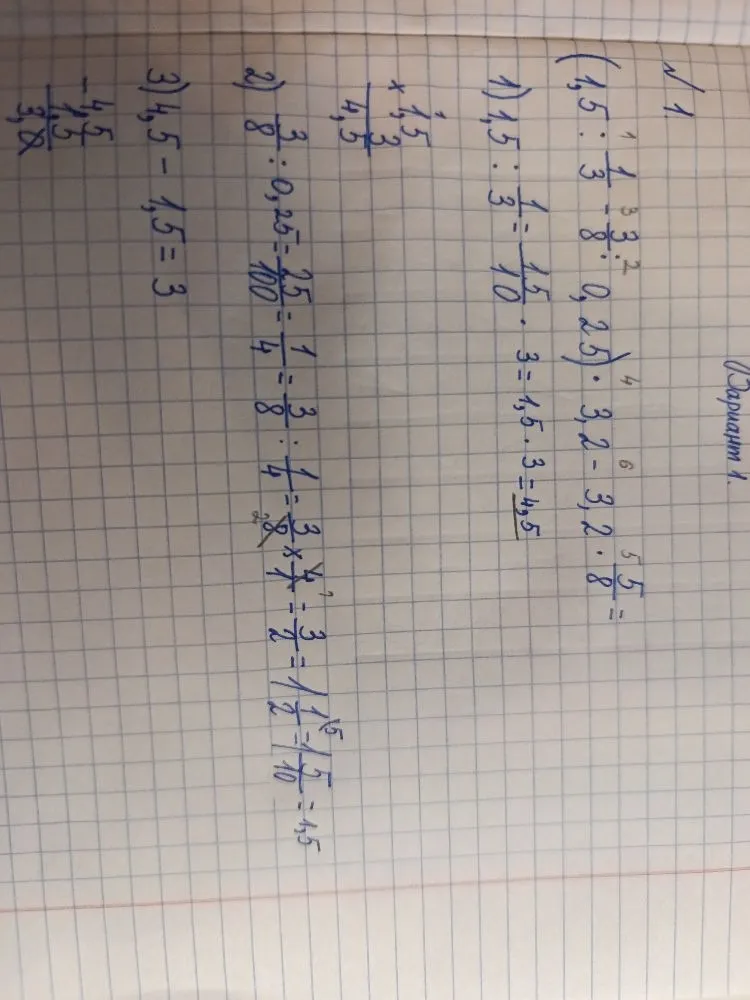 Вариант 1.
№ 1.
(1,5 : 1/3 - 3/8 : 0,25) · 3,2 - 3,2 · 5/8 =
1) 1,5 : 1/3 = 15/10 · 3 = 1,5 · 3 = 4,5
× 1,5
3
4,5
2) 3/8 : 0,25 = 25/100 = 1/4 = 3/8 : 1/4 = 3/8 × 4/1 = 3/2 = 1 1/2 = 1 5/10 = 1,5
3) 4,5 - 1,5 = 3
- 4,5
1,5
3,0